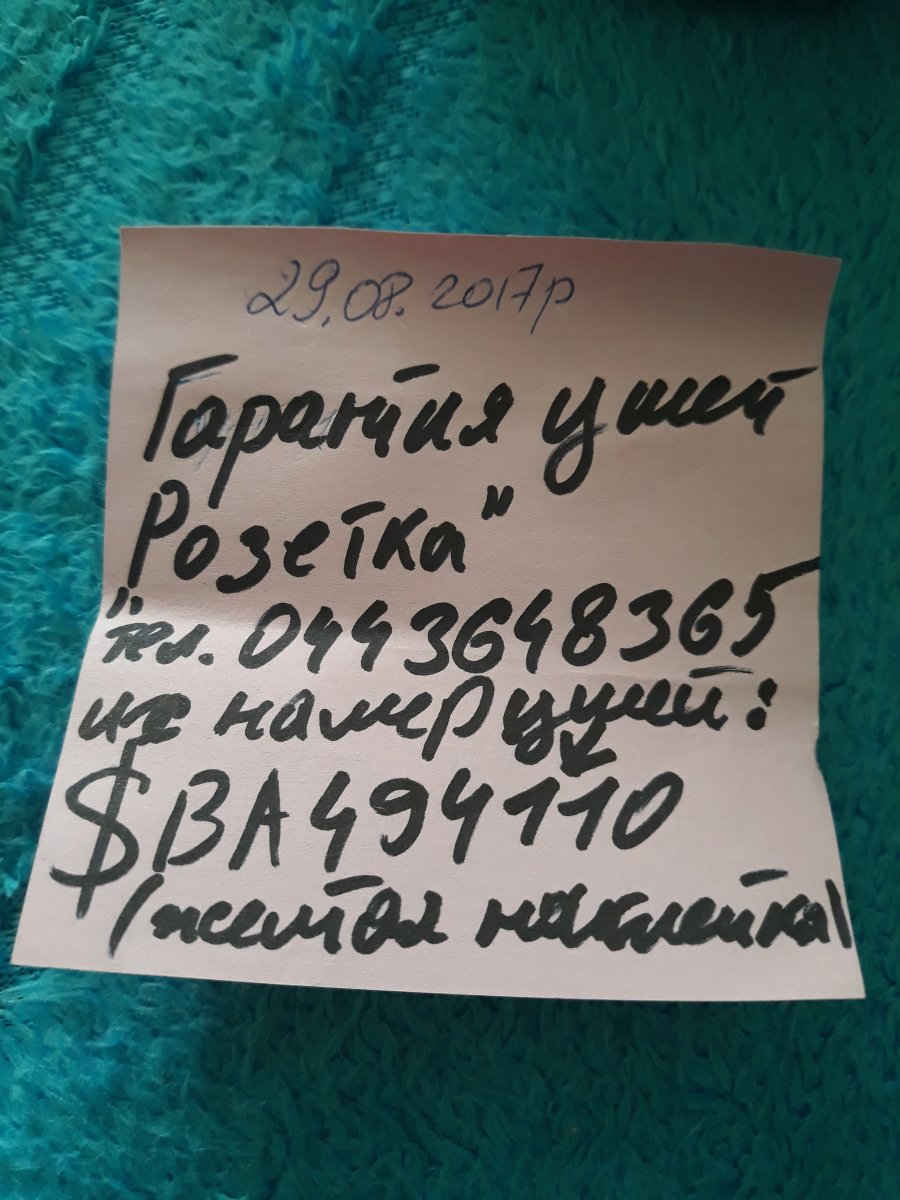 29.08.2017р
Гарантия ушей
Розетка"
"тел. 0443648365
их намер ушей:
$BA494110
(желтая наклейка)